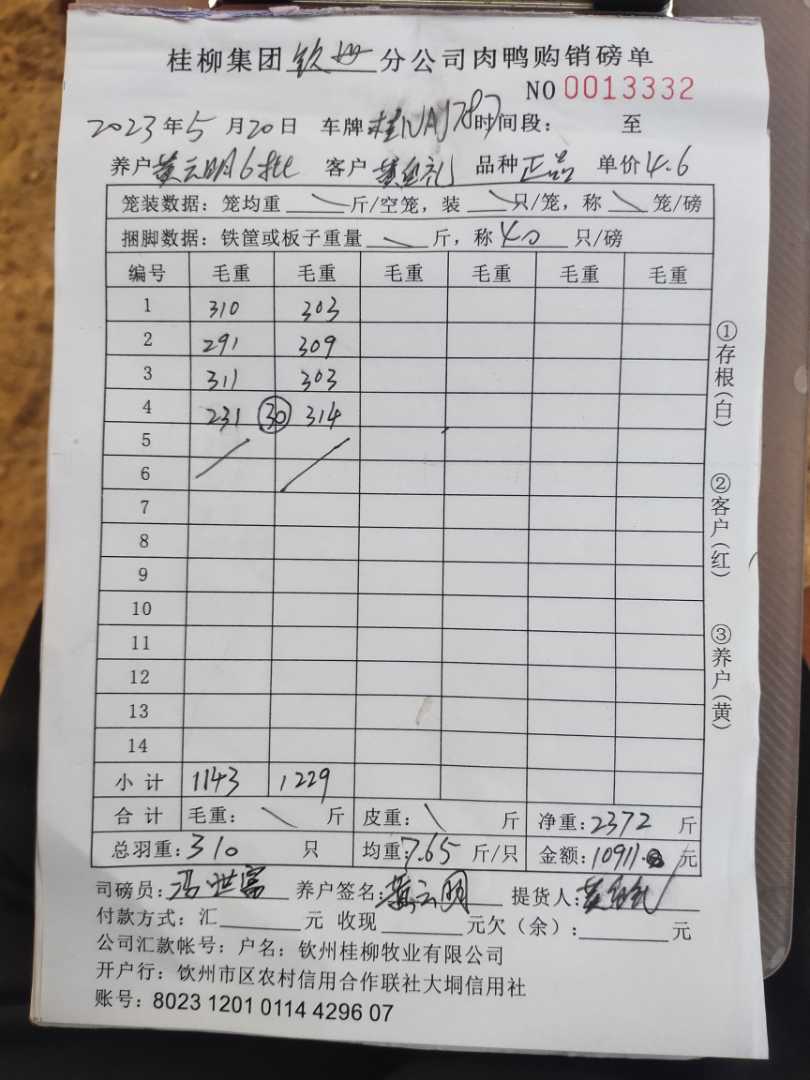 桂柳集团钦州分公司肉鸭购销磅单
NO 0013332
2023年5月20日 车牌 时间段: 至
养户黄云明6批 客户 品种正品 单价4.6
笼装数据:笼均重 斤/空笼,装 只/笼,称 笼/磅
捆脚数据:铁筐或板子重量 斤,称40只/磅
编号 毛重 毛重 毛重 毛重 毛重 毛重
1 310 303
2 291 309
3 311 303
4 231 30 314
5
6
7
8
9
10
11
12
13
14
小计 1143 1229
合计 毛重: 斤 皮重: 斤 净重:2372 斤
总羽重:310 只 均重:7.65 斤/只 金额:10911. 元
司磅员:冯世富 养户签名:黄云明 提货人:
付款方式:汇 元 收现 元欠(余): 元
公司汇款帐号:户名:钦州桂柳牧业有限公司
开户行:钦州市区农村信用合作联社大垌信用社
账号:8023 1201 0114 4296 07
①存根(白)
②客户(红)
③养户(黄)